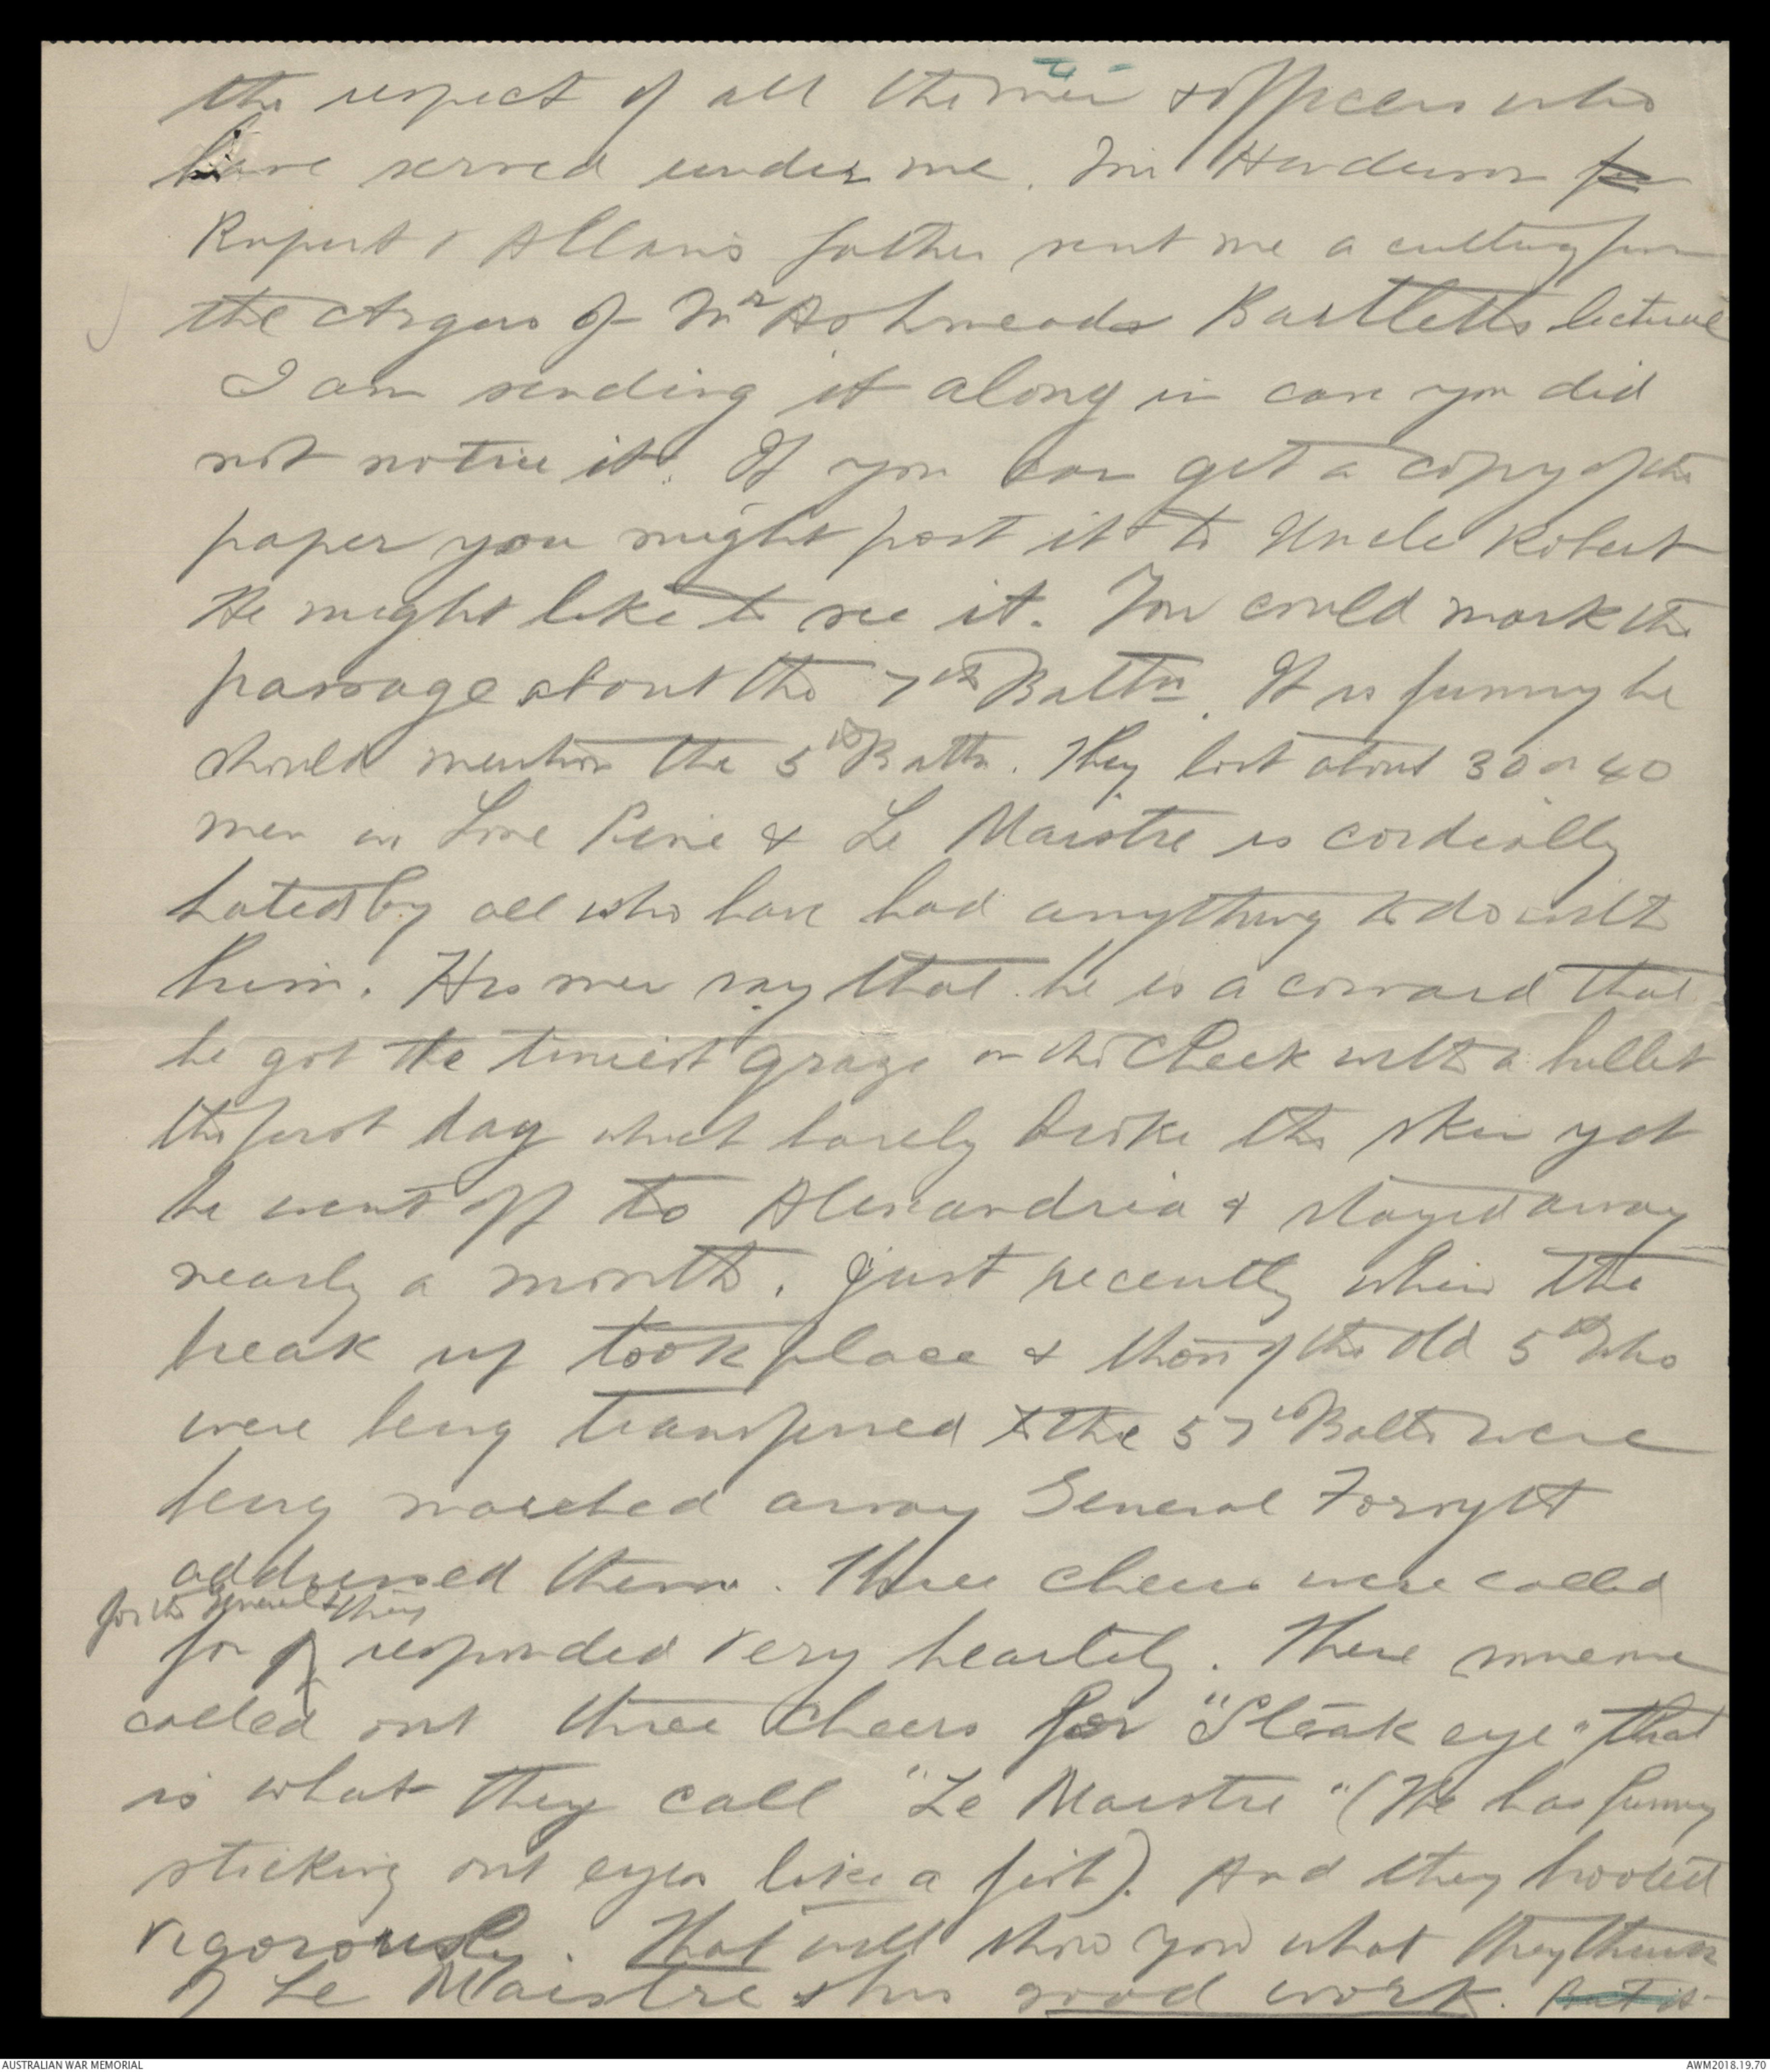 the respect of all the men & officers who
have served under me. Mr Henderson
Rupert & Allan's father sent me a cutting from
the Argus of Mr Ashmeade Bartletts lecture
I am sending it along in case you did
not notice it. If you can get a copy of the
paper you might post it to Uncle Robert
He might like to see it. You could mark the
passage about the 7th Battn. It is funny he
should mention the 5th Battn. They lost about 30 or 40
men in Lone Pine & Le Maistre is cordially
hated by all who have had anything to do with
him. His men say that he is a coward that
he got the tiniest graze on the cheek with a bullet
the first day which barely broke the skin yet
he went off to Alexandria & stayed away
nearly a month. Just recently when the
break up took place & those of the old 5th who
were being transferred to the 57th Battn were
being marched away General Forsyth
addressed them. Three cheers were called
for the General & they
for responded very heartily. Then someone
called out three cheers for "Steak eye" that
is what they call "Le Maistre" (He has funny
sticking out eyes like a fish). And they hooted
vigorously. That will show you what they think
of Le Maistre & his good work. But it
AUSTRALIAN WAR MEMORIAL
AWM2018.19.70